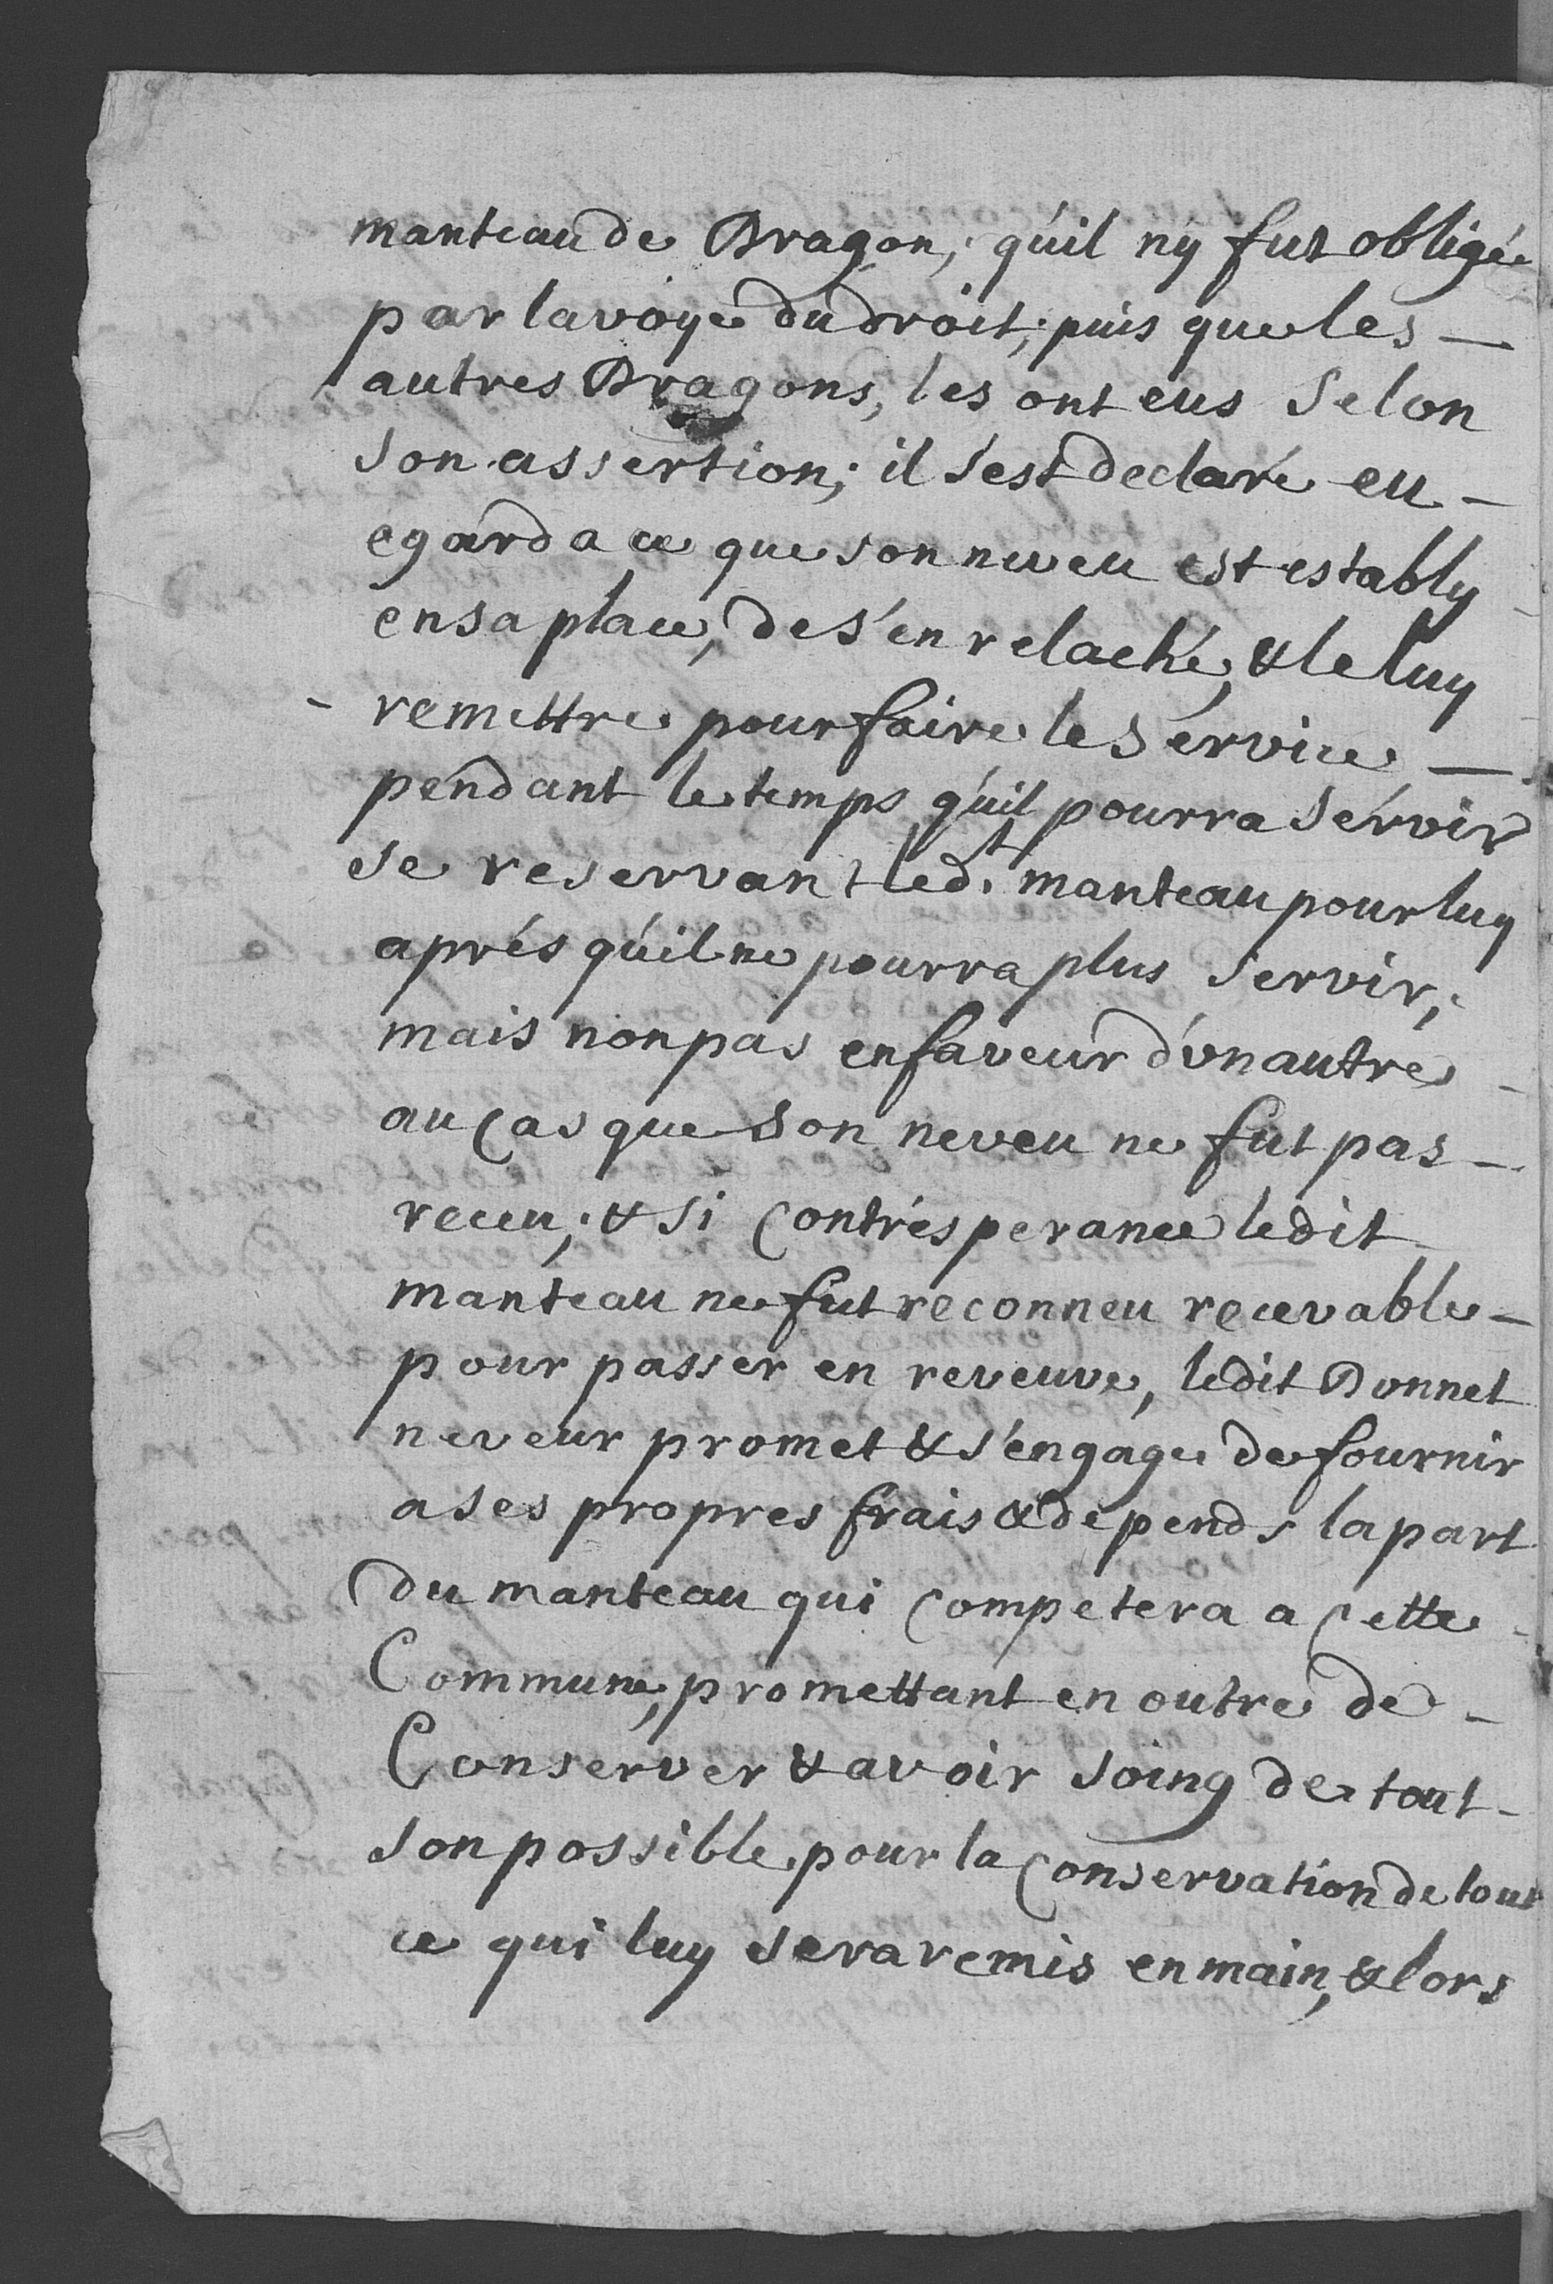 manteau de Dragon, qu'il n'y fut obligée
par la voye du droit, puis que les —
autres Dragons, les ont eus selon
son assertion; il s'est declaré eu —
egard a ce que son neveu est estably
en sa place, de s'en relaché, & le luy
- remettre pour faire le service —
pendant le temps qu'il pourra servir
se reservant led.t manteau pour luy
aprés qu'il ne pourra plus servir,
mais non pas en faveur d'un autre
au cas que son neveu ne fut pas —
receu; & si contr'esperance ledit
manteau ne fut reconneu recevable —
pour passer en reveuve, ledit Donnet
neveur promet & s'engage de fournir
a ses propres frais & depends la part
du manteau qui competera a cette
Commune, promettant en outre de —
Conserver & avoir soing de tout —
son possible pour la conservation de tout
ce qui luy sera remis en main, & lors